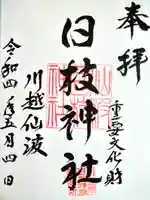 奉拝
重要文化財
日枝神社
川越仙波
令和四年五月四日